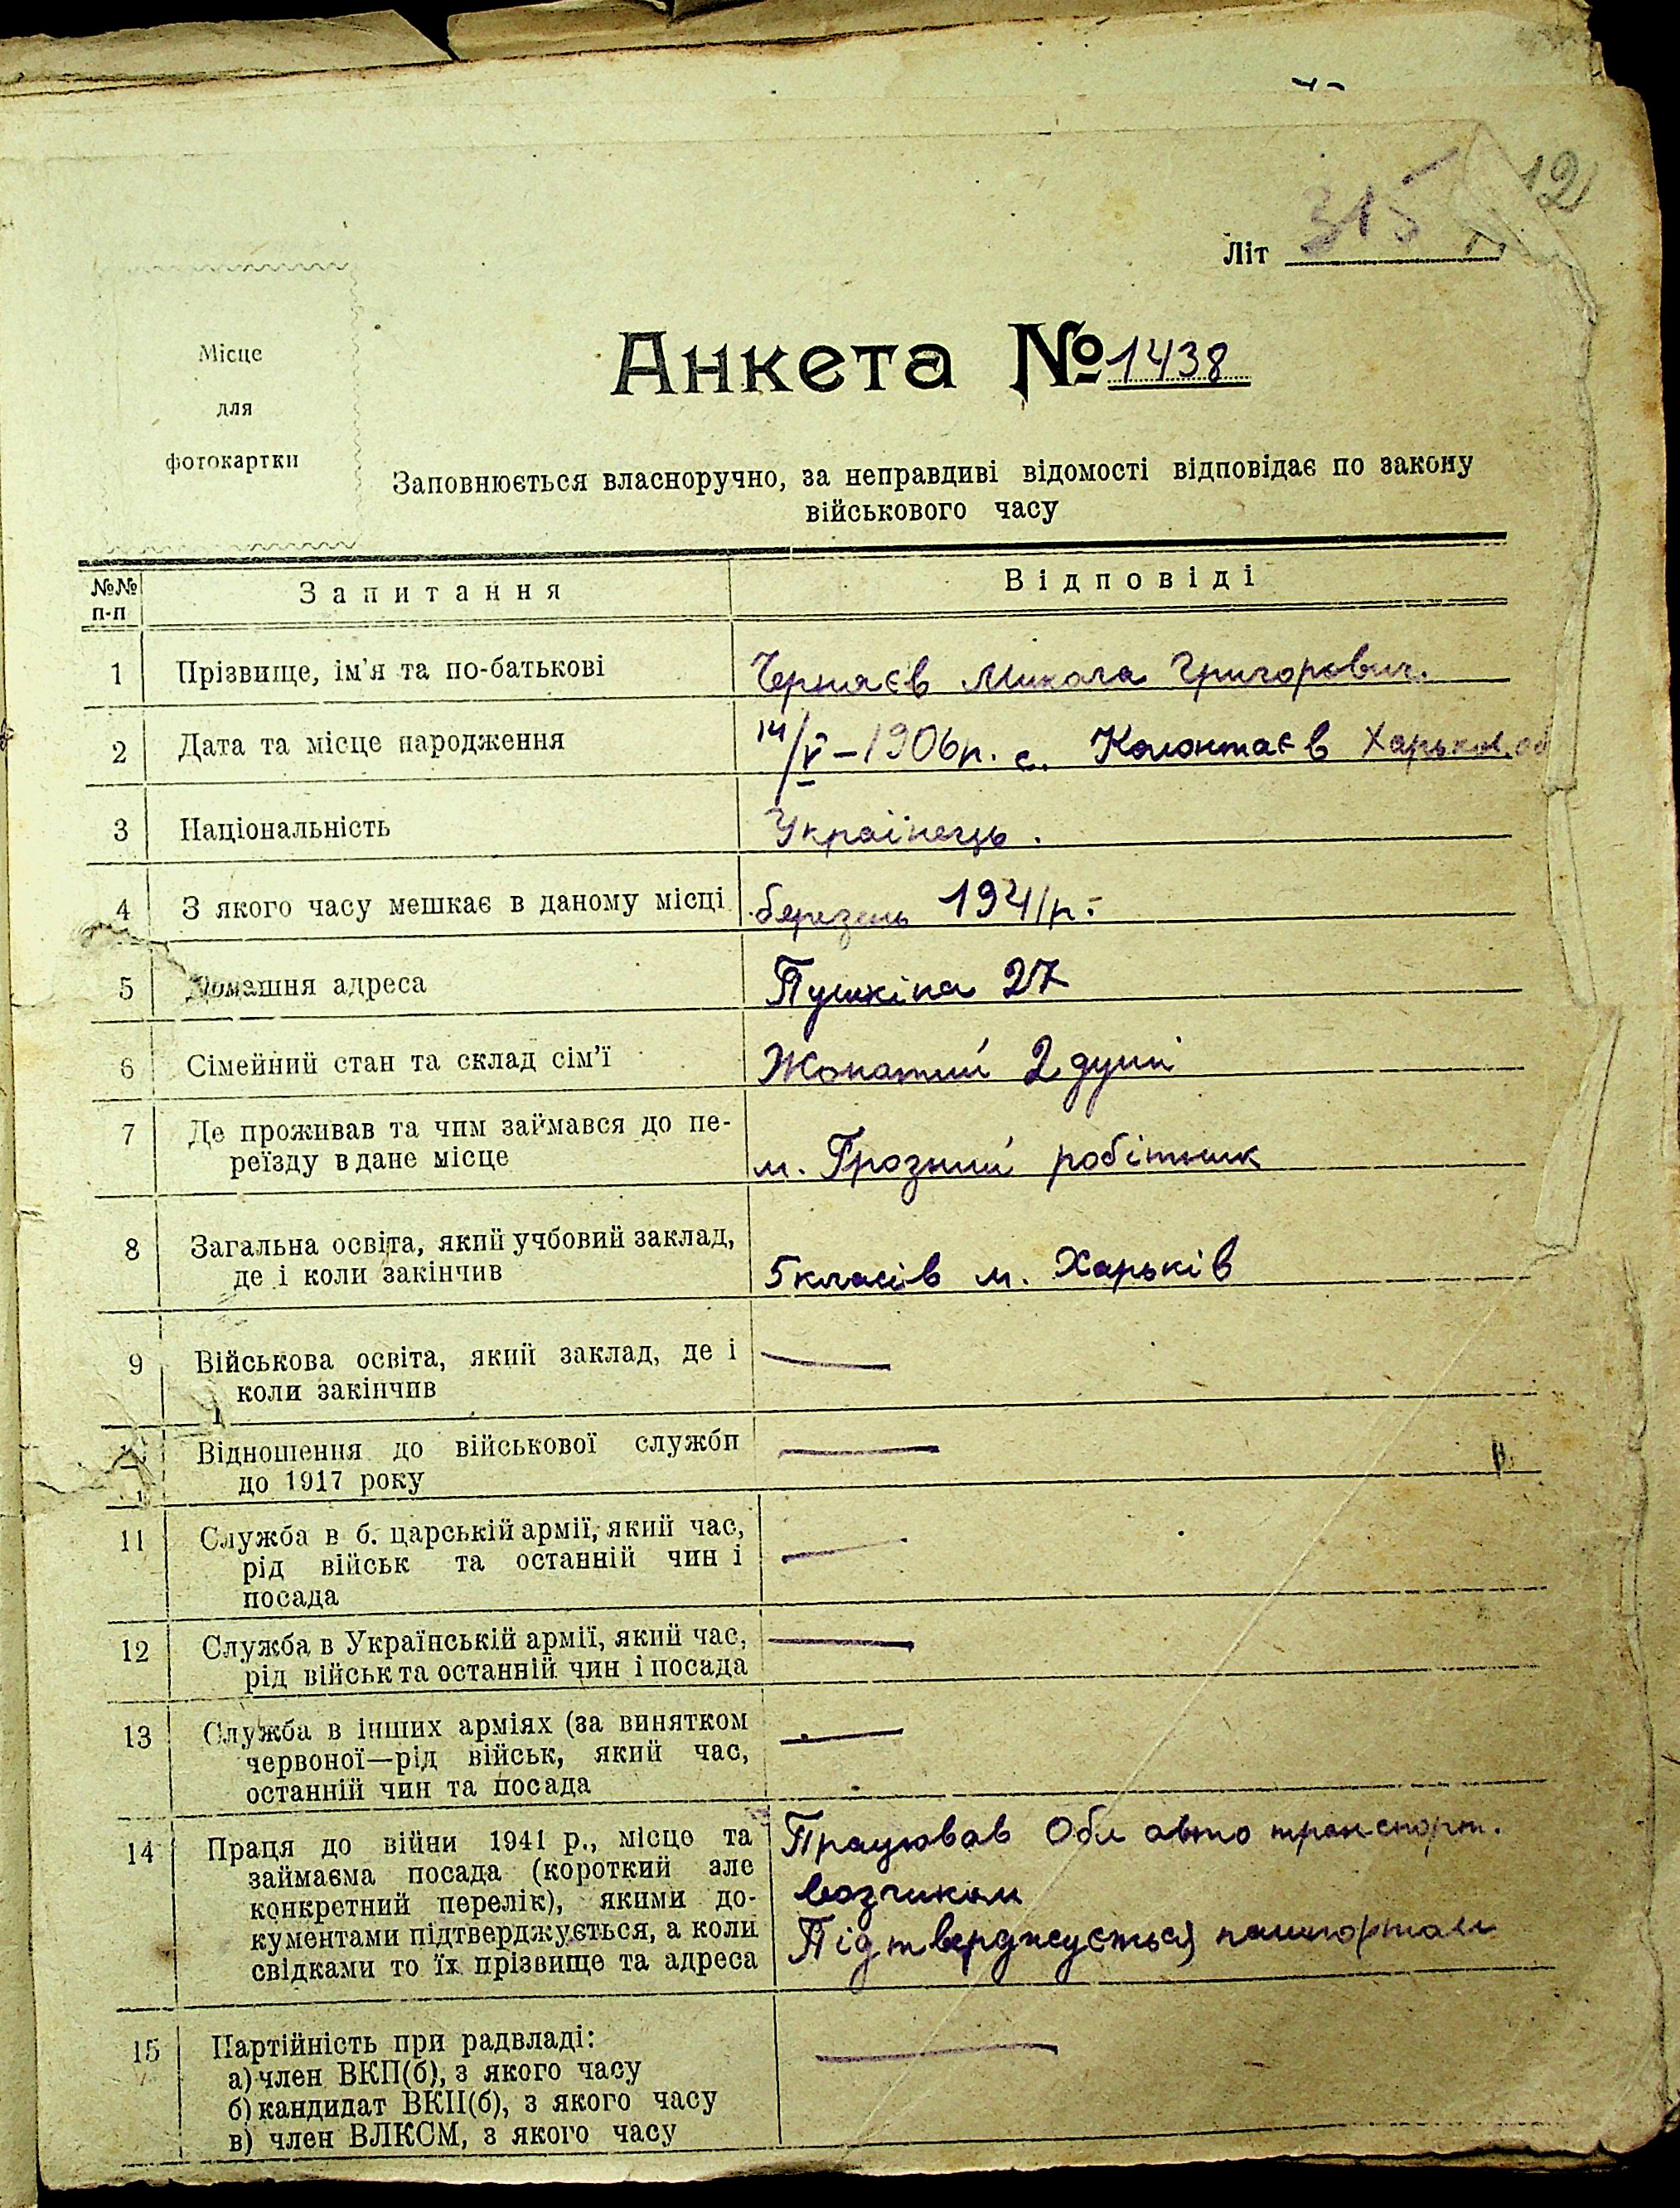 12
Літ 315
Місце
для
фотокартки
Анкета № 1438
Заповнюється власноручно, за неправдиві відомості відповідає по закону
військового часу
№№ п-п Запитання Відповіді
1 Прізвище, ім'я та по-батькові Черняєв Микола Григорович.
2 Дата та місце народження 14/V–1906р. с. Колонтаєв Харьков. об
3 Національність Українець.
4 З якого часу мешкає в даному місці березень 1941р.
5 Домашня адреса Пушкіна 27
6 Сімейний стан та склад сім'ї Жонатий 2 душі
7 Де проживав та чим займався до пе-
реїзду в дане місце м. Грозний робітник
8 Загальна освіта, який учбовий заклад,
де і коли закінчив 5 класів м. Харьків
9 Військова освіта, який заклад, де і —
коли закінчив
Відношення до військової служби —
до 1917 року
11 Служба в б. царській армії, який час, —
рід військ та останній чин і
посада
12 Служба в Українській армії, який час, —
рід військ та останній чин і посада
13 Служба в інших арміях (за винятком —
червоної—рід військ, який час,
останній чин та посада
14 Праця до війни 1941 р., місце та Працював Обл авто транспорт.
займаєма посада (короткий але
конкретний перелік), якими до- возчиком
кументами підтверджується, а коли Підтверджується пашпортом
свідками то їх прізвище та адреса
15 Партійність при радвладі: —
а) член ВКП(б), з якого часу
б) кандидат ВКП(б), з якого часу
в) член ВЛКСМ, з якого часу